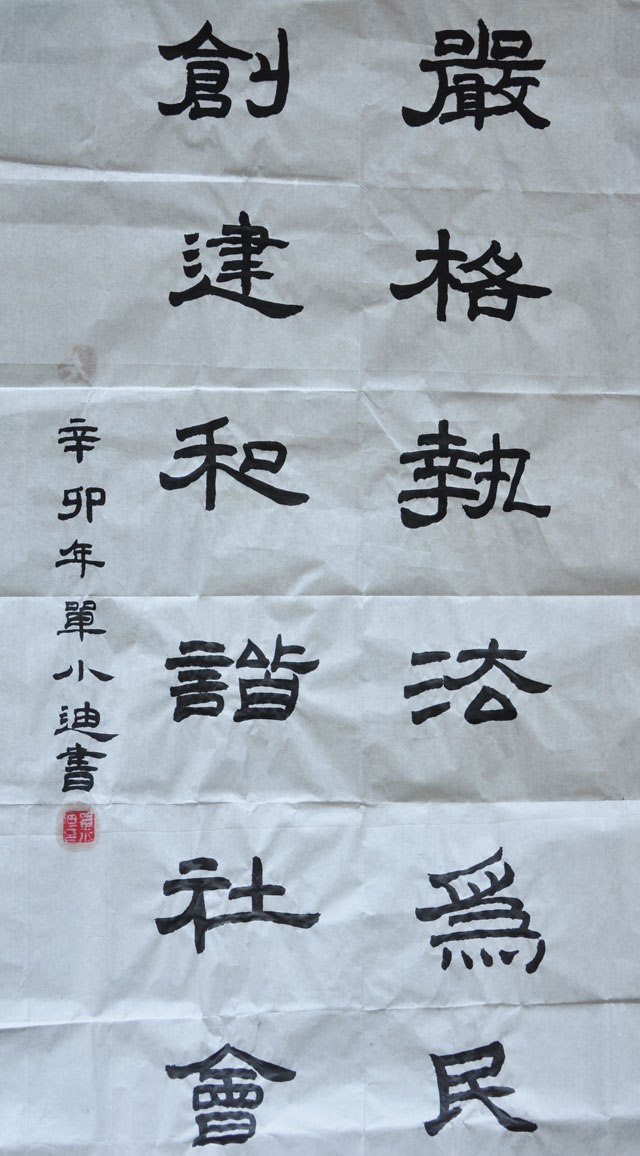 嚴格執法爲民
創建和諧社會
辛卯年單小迪書